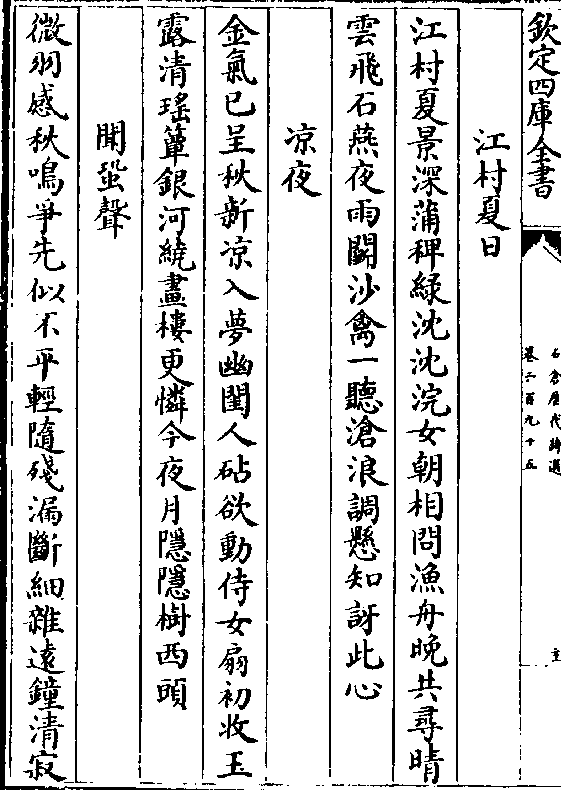 欽定四庫全書
石倉歷代詩選
卷二百九十五
江村夏日
江村夏景深蒲稗緑沈沈浣女朝相問漁舟晚共尋晴
雲飛石燕夜雨鬭沙禽一聽滄浪調懸知訝此心
凉夜
金氣已呈秋新凉入夢幽閨人砧欲動侍女扇初收玉
露清瑤簟銀河繞畫樓更憐今夜月隱隱樹西頭
聞蛩聲
微羽感秋鳴爭先似不平輕隨殘漏斷細雜遠鐘清寂